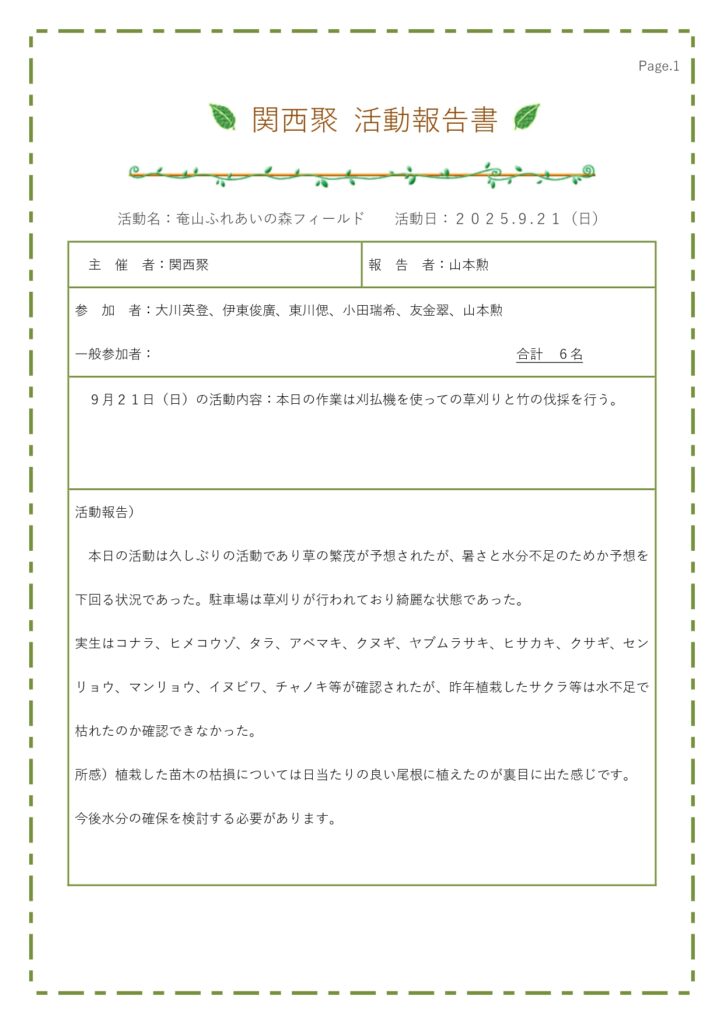 Page.1
関西聚 活動報告書
活動名：奄山ふれあいの森フィールド　　活動日：２０２５.９.２１（日）
主　催　者：関西聚
報　告　者：山本勲
参　加　者：大川英登、伊東俊廣、東川偲、小田瑞希、友金翠、山本勲
一般参加者：
合計　６名
９月２１日（日）の活動内容：本日の作業は刈払機を使っての草刈りと竹の伐採を行う。
活動報告）
本日の活動は久しぶりの活動であり草の繁茂が予想されたが、暑さと水分不足のためか予想を
下回る状況であった。駐車場は草刈りが行われており綺麗な状態であった。
実生はコナラ、ヒメコウゾ、タラ、アベマキ、クヌギ、ヤブムラサキ、ヒサカキ、クサギ、セン
リョウ、マンリョウ、イヌビワ、チャノキ等が確認されたが、昨年植栽したサクラ等は水不足で
枯れたのか確認できなかった。
所感）植栽した苗木の枯損については日当たりの良い尾根に植えたのが裏目に出た感じです。
今後水分の確保を検討する必要があります。